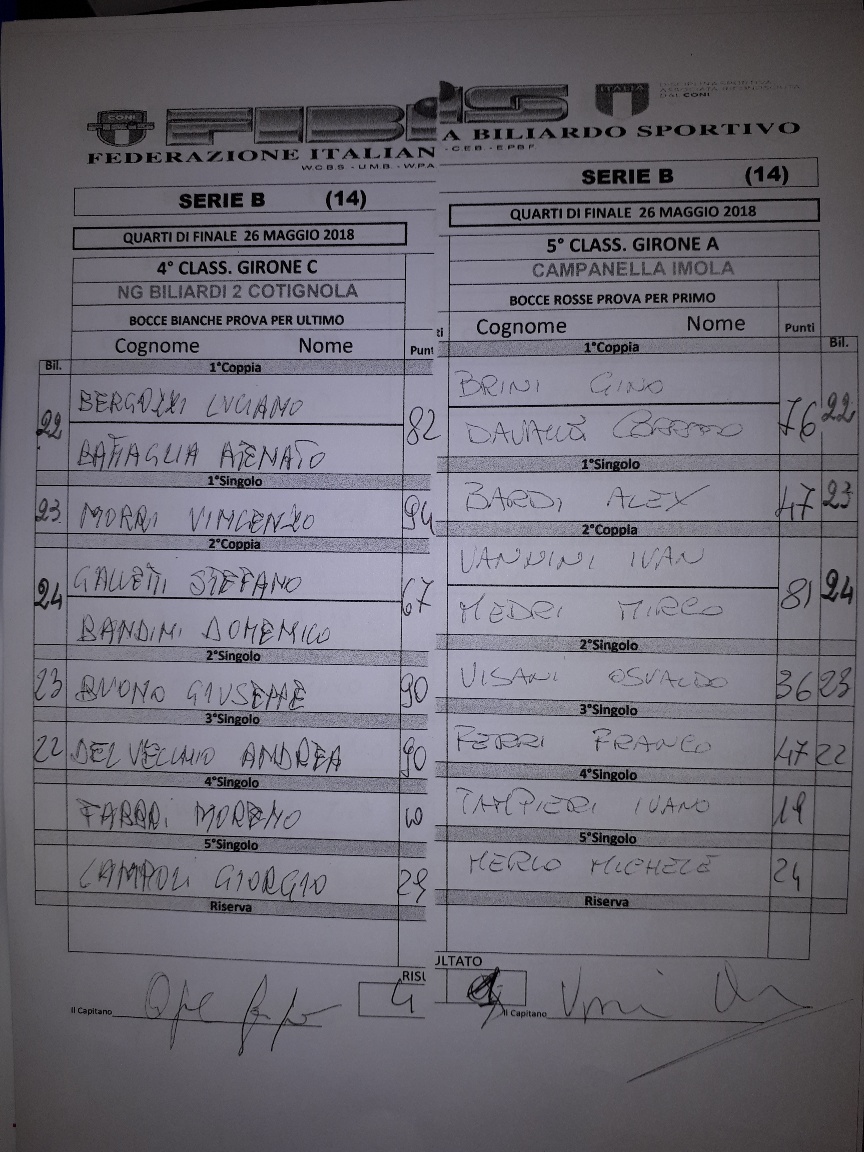 CONI
FIBiS
ITALIA
DISCIPLINA SPORTIVA
ASSOCIATA RICONOSCIUTA
DAL CONI
FEDERAZIONE ITALIAN A BILIARDO SPORTIVO
W.C.B.S. - U.M.B. - W.P.A - C.E.B. - E.P.B.F.
SERIE B (14)
QUARTI DI FINALE 26 MAGGIO 2018
4° CLASS. GIRONE C
NG BILIARDI 2 COTIGNOLA
BOCCE BIANCHE PROVA PER ULTIMO
Cognome Nome Punti
Bil. 1°Coppia
22 BERGOZZI LUCIANO 82
BATTAGLIA RENATO
1°Singolo
23 MORRI VINCENZO 94
2°Coppia
24 GALLETTI STEFANO 67
BANDINI DOMENICO
2°Singolo
23 BUONO GIUSEPPE 90
3°Singolo
22 DEL VECCHIO ANDREA 90
4°Singolo
FABBRI MORENO
5°Singolo
CAMPOLI GIORGIO 29
Riserva
RISU
Il Capitano 4
SERIE B (14)
QUARTI DI FINALE 26 MAGGIO 2018
5° CLASS. GIRONE A
CAMPANELLA IMOLA
BOCCE ROSSE PROVA PER PRIMO
Cognome Nome Punti
1°Coppia Bil.
BRINI GINO 76 22
1°Singolo
BARDI ALEX 47 23
2°Coppia
VANNINI IVAN 81 24
MEDRI MIRCO
2°Singolo
VISANI OSVALDO 36 23
3°Singolo
FERRI FRANCO 47 22
4°Singolo
TAMPIERI IVANO 19
5°Singolo
MERLO MICHELE 24
Riserva
ULTATO
Il Capitano